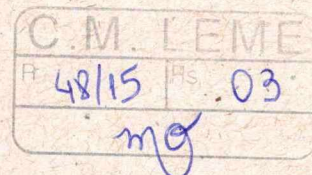 C.M. LEME
Pr 48/15 Fls. 03